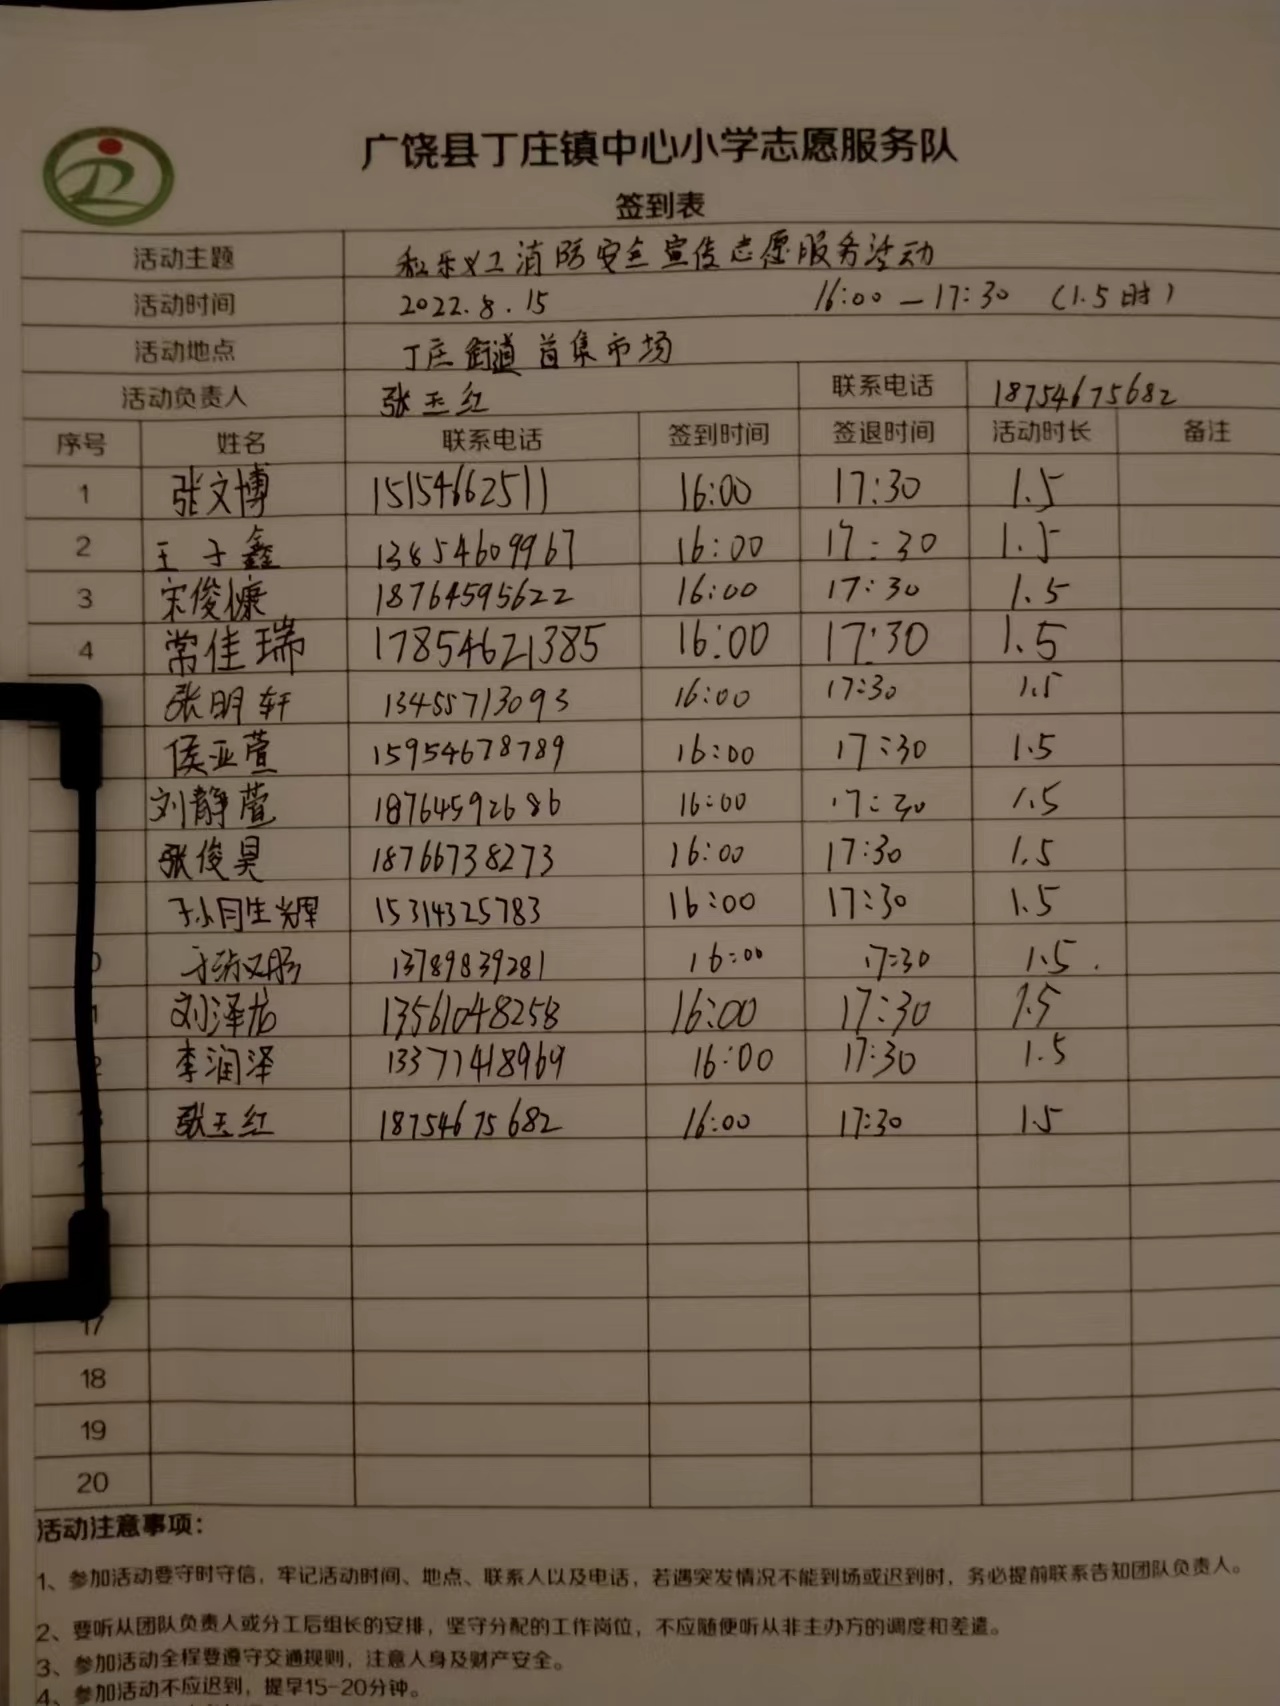 广饶县丁庄镇中心小学志愿服务队
签到表
活动主题 和乐义工消防安全宣传志愿服务活动
活动时间 2022.8.15 16:00—17:30 (1.5时)
活动地点 丁庄街道首集市场
活动负责人 张玉红 联系电话 18754675682
序号 姓名 联系电话 签到时间 签退时间 活动时长 备注
1 张文博 15154662511 16:00 17:30 1.5
2 王子鑫 13854609967 16:00 17:30 1.5
3 宋俊慷 18764595622 16:00 17:30 1.5
4 常佳瑞 17854621385 16:00 17:30 1.5
张明轩 13455713093 16:00 17:30 1.5
侯亚萱 15954678789 16:00 17:30 1.5
刘静萱 18764592686 16:00 17:30 1.5
张俊昊 18766738273 16:00 17:30 1.5
15314325783 16:00 17:30 1.5
0 13789839281 16:00 17:30 1.5.
1 刘泽龙 13561048258 16:00 17:30 1.5
2 李润泽 13371418969 16:00 17:30 1.5
3 张玉红 18754675682 16:00 17:30 1.5
17
18
19
20
活动注意事项：
1、参加活动要守时守信，牢记活动时间、地点、联系人以及电话，若遇突发情况不能到场或迟到时，务必提前联系告知团队负责人。
2、要听从团队负责人或分工后组长的安排，坚守分配的工作岗位，不应随便听从非主办方的调度和差遣。
3、参加活动全程要遵守交通规则，注意人身及财产安全。
4、参加活动不应迟到，提早15-20分钟。